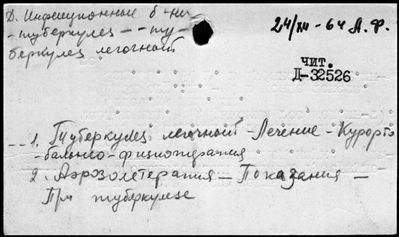 Д. Инфекционные б-ни-
-туберкулез - ту-
беркулез легочный
24/XII - 64 А.Ф.
чит.
Д-32526
1. Туберкулез легочный - Лечение - Курорто
-бальнео-физиотерапия
2. Аэрозолетерапия - Показания -
При туберкулезе